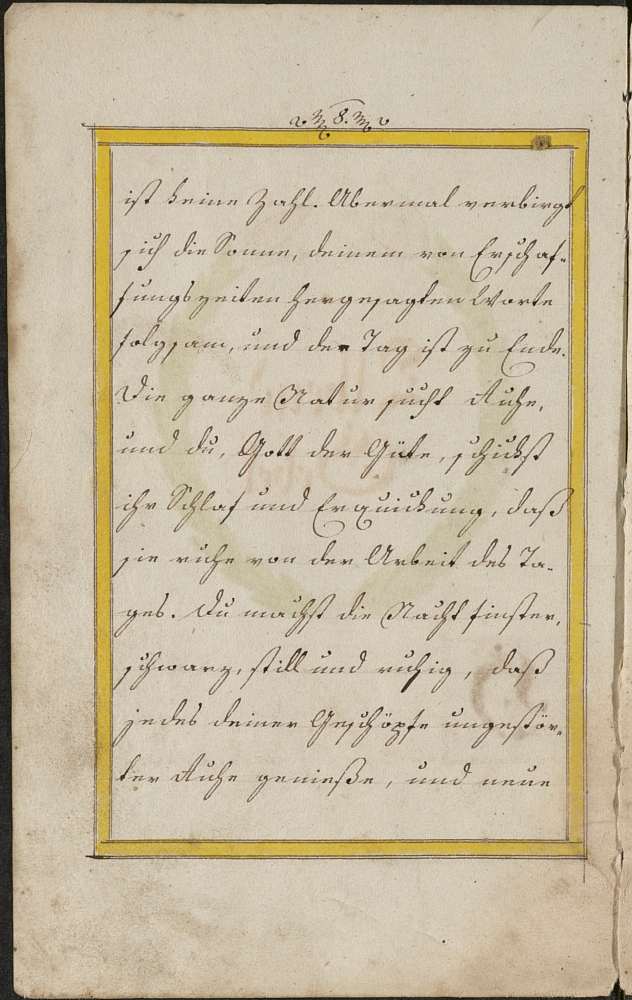 8.
ist keine Zahl. Abermal verbirgt
sich die Sonne, deinem von Erschaf-
fungszeiten hergesagten Worte
folgsam, und der Tag ist zu Ende.
Die ganze Natur sucht Ruhe,
und du, Gott der Güte, schickst
ihr Schlaf und Erquickung, daß
sie ruhe von der Arbeit des Ta-
ges. Du machst die Nacht finster,
schwarz, still und ruhig, daß
jedes deiner Geschöpfe ungestör-
ter Ruhe genieße, und neue